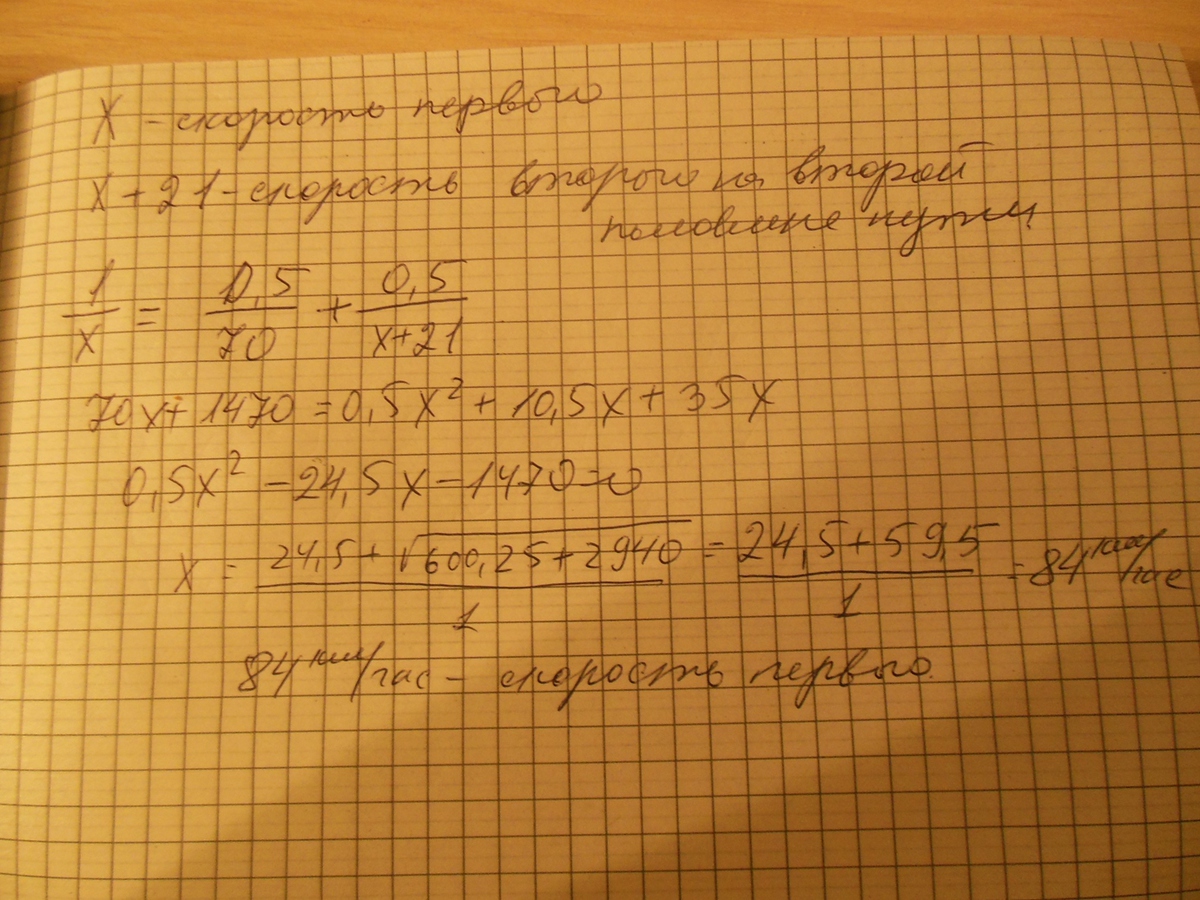 X - скорость первого
X + 21 - скорость второго на второй
половине пути
1/x = 0,5/70 + 0,5/x+21
70x + 1470 = 0,5x² + 10,5x + 35x
0,5x² - 24,5x - 1470 = 0
x = 24,5 + √600,25 + 2940 / 1 = 24,5 + 59,5 / 1 = 84 км/час
84 км/час - скорость первого.